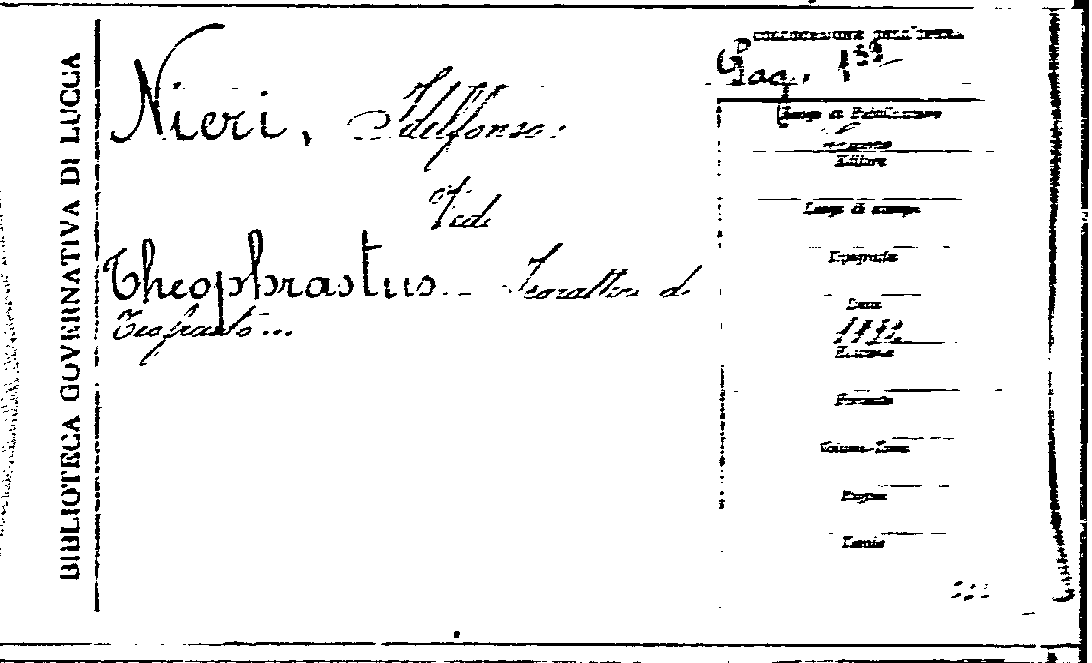 BIBLIOTECA GOVERNATIVA DI LUCCA
Nieri, Idelfonso
Vedi
Theophrastus
Teofrasto...
COLLOCAZIONE DELL'OPERA
Luogo di Pubblicazione
Editore
Luogo di stampa
Tipografia
Data
Edizione
Formato
Pagine
Tavole